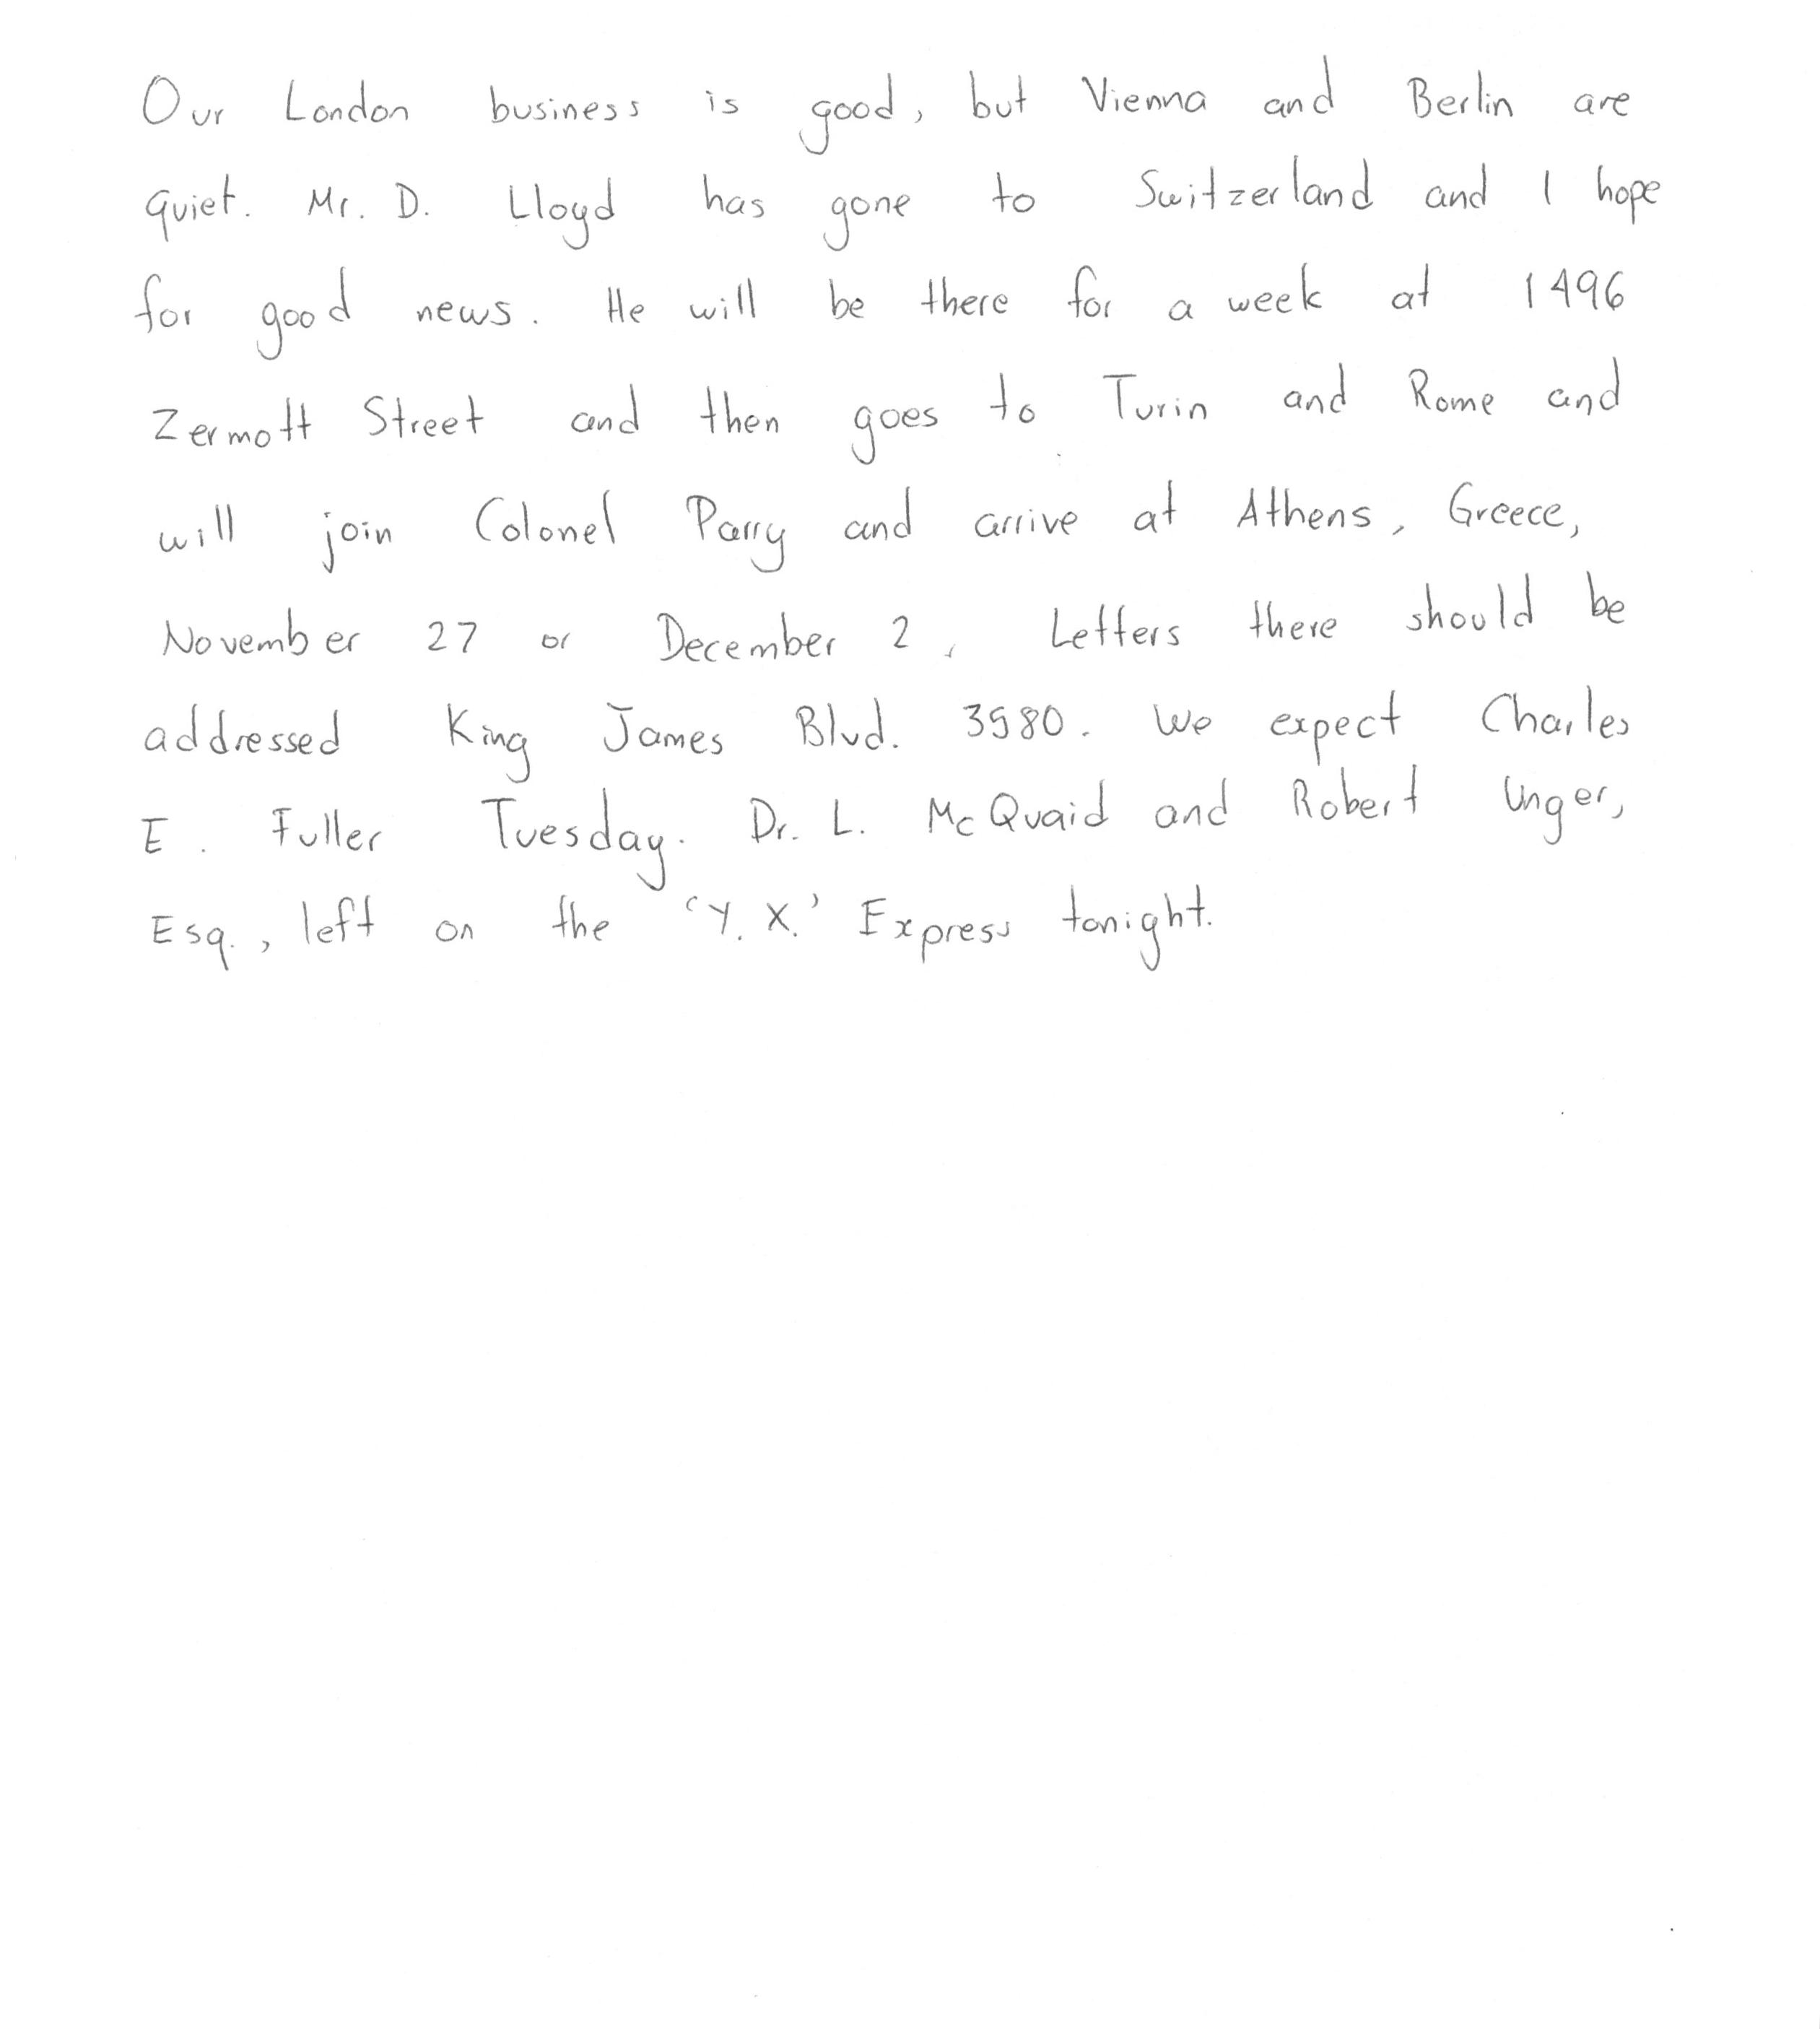 Our London business is good, but Vienna and Berlin are
quiet. Mr. D. Lloyd has gone to Switzerland and I hope
for good news. He will be there for a week at 1496
Zermott Street and then goes to Turin and Rome and
will join Colonel Parry and arrive at Athens, Greece,
November 27 or December 2, Letters there should be
addressed King James Blvd. 3580. We expect Charles
E. Fuller Tuesday. Dr. L. McQuaid and Robert Unger,
Esq., left on the 'Y. X.' Express tonight.